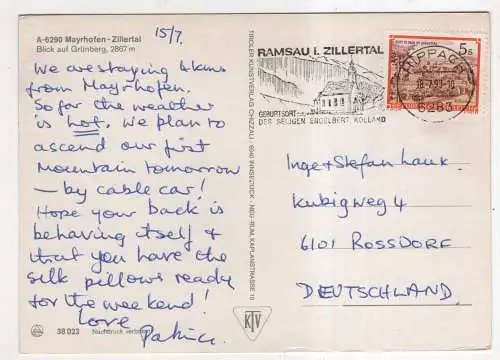 A-6290 Mayrhofen - Zillertal
Blick auf Grünberg, 2867 m
15/7.
We are staying 4kms
from Mayrhofen.
So far the weather
is hot. We plan to
ascend our first
Mountain tomorrow
— by cable car!
Hope your back is
behaving itself &
that you have the
silk pillows ready
for the weekend!
Love
Patricia.
38 023 Nachdruck verboten
TIROLER KUNSTVERLAG CHIZZALI · 6040 INNSBRUCK
KTV
RAMSAU I. ZILLERTAL
GEBURTSORT
DES SELIGEN ENGELBERT KOLLAND
5 s
HIPPACH
6283
Inge + Stefan Lauk.
Kubigweg 4
6101 ROSSDORF
DEUTSCHLAND.